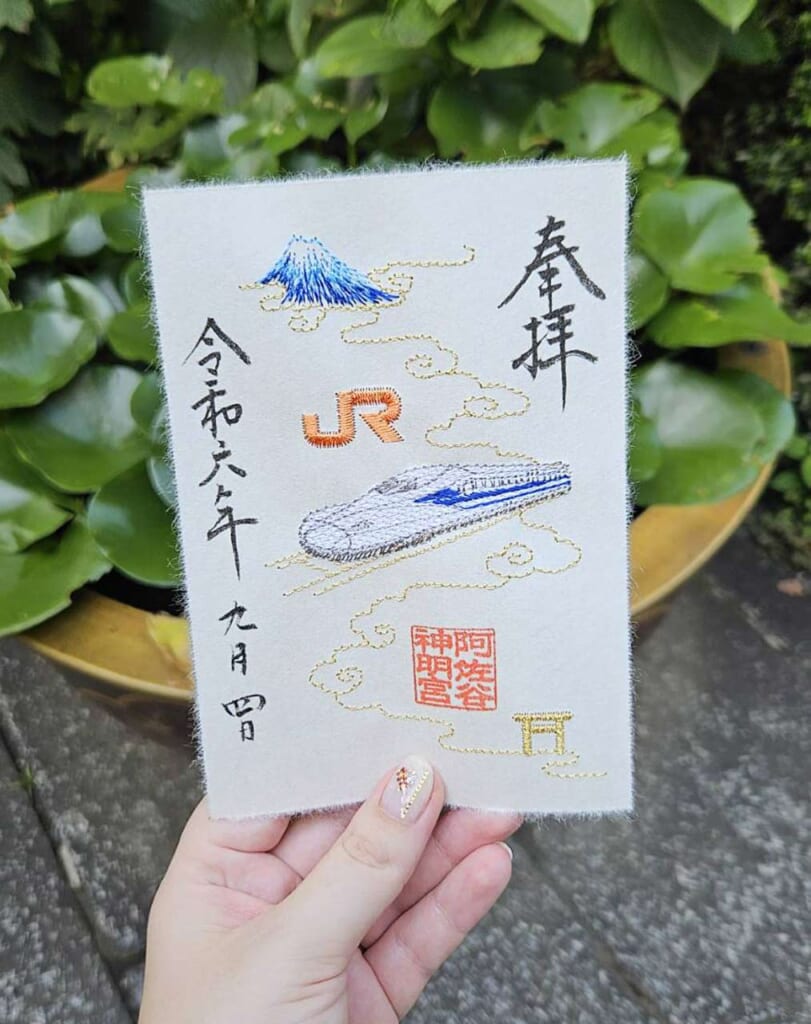 奉拝
JR
阿佐谷
神明宮
令和六年九月四日